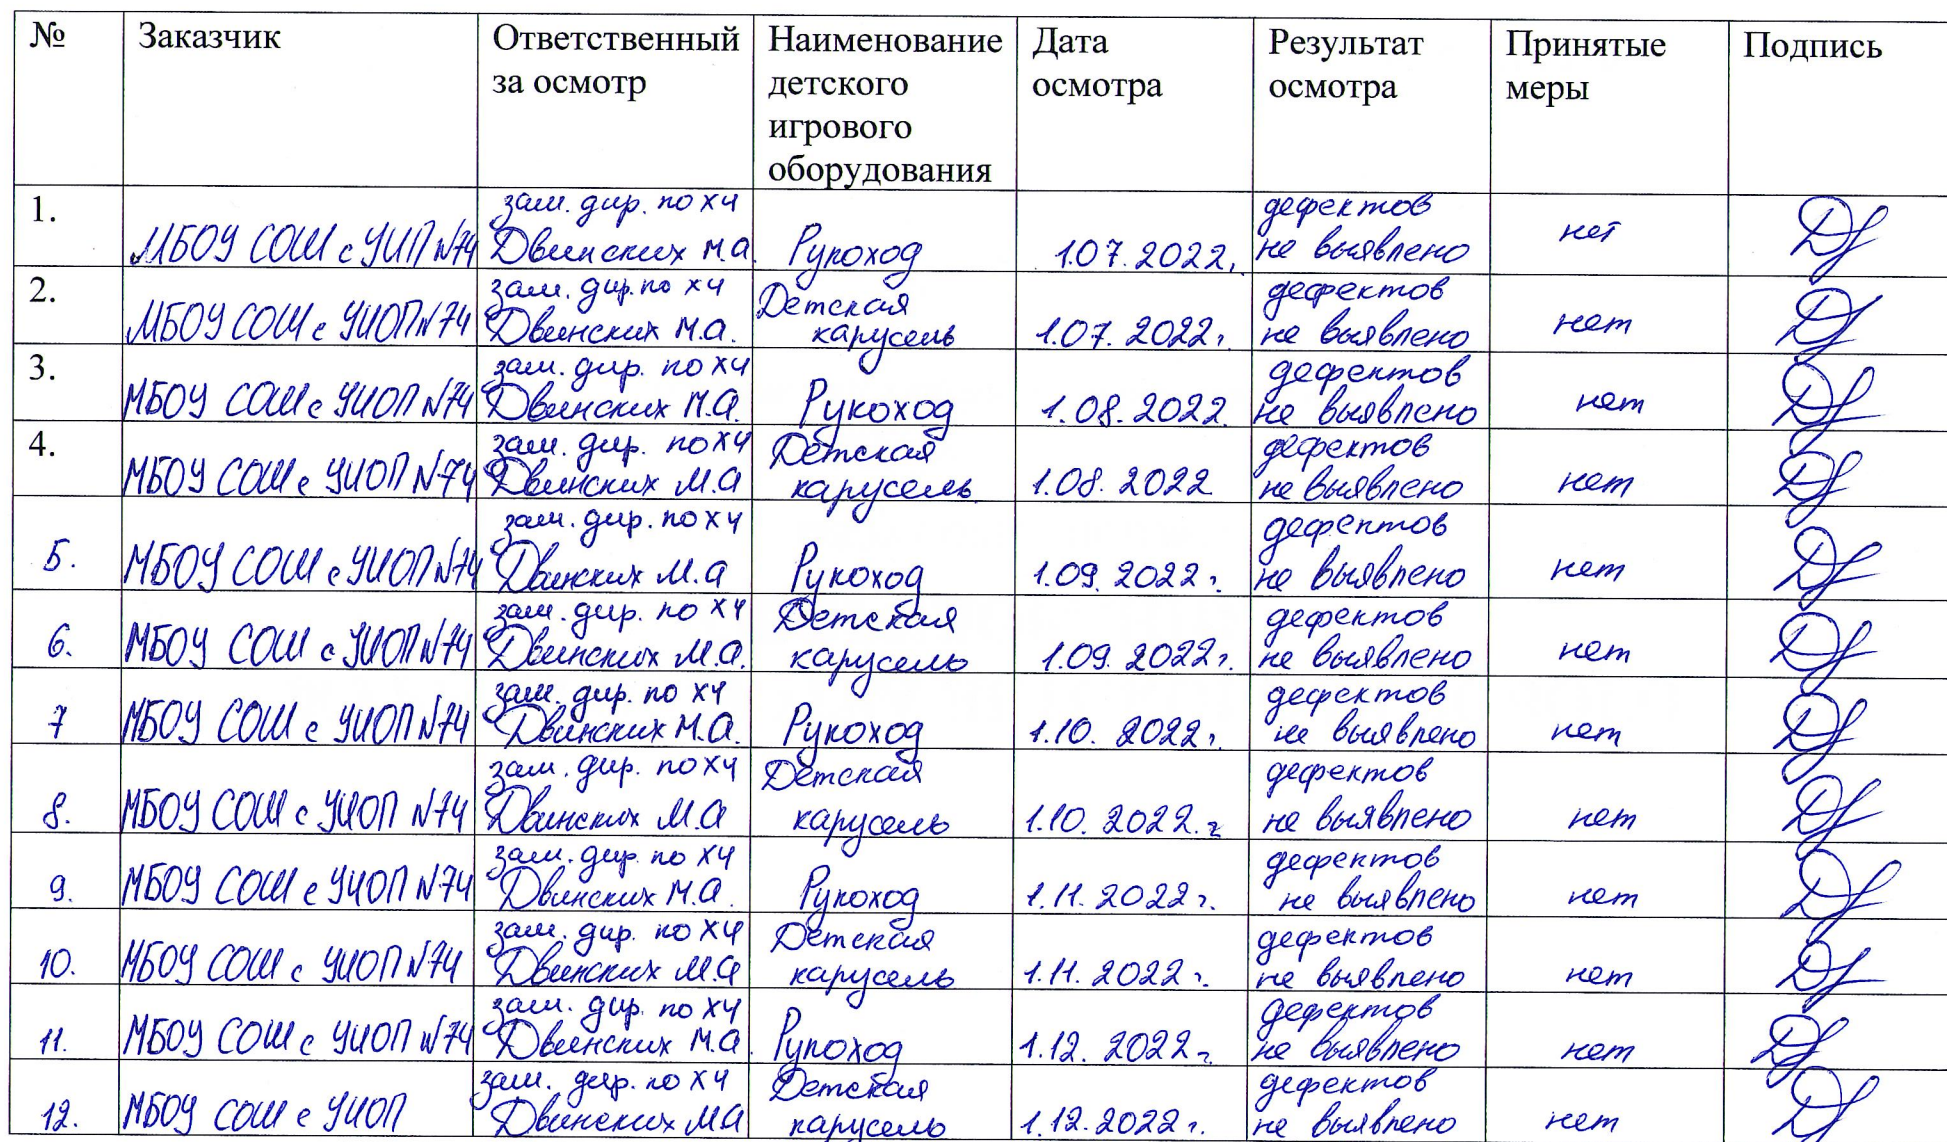 № Заказчик Ответственный за осмотр Наименование детского игрового оборудования Дата осмотра Результат осмотра Принятые меры Подпись
1. МБОУ СОШ с УИП №74 зам. дир. по ХЧ Двинских М.А. Рукоход 1.07.2022г. дефектов не выявлено нет
2. МБОУ СОШ с УИОП №74 зам. дир. по ХЧ Двинских М.А. Детская карусель 1.07.2022г. дефектов не выявлено нет
3. МБОУ СОШ с УИОП №74 зам. дир. по ХЧ Двинских М.А. Рукоход 1.08.2022. дефектов не выявлено нет
4. МБОУ СОШ с УИОП №74 зам. дир. по ХЧ Двинских М.А Детская карусель 1.08.2022 дефектов не выявлено нет
5. МБОУ СОШ с УИОП №74 зам. дир. по ХЧ Двинских М.А Рукоход 1.09.2022г. дефектов не выявлено нет
6. МБОУ СОШ с УИОП №74 зам. дир. по ХЧ Двинских М.А. Детская карусель 1.09.2022г. дефектов не выявлено нет
7 МБОУ СОШ с УИОП №74 зам. дир. по ХЧ Двинских М.А. Рукоход 1.10.2022г. дефектов не выявлено нет
8. МБОУ СОШ с УИОП №74 зам. дир. по ХЧ Двинских М.А Детская карусель 1.10.2022.г дефектов не выявлено нет
9. МБОУ СОШ с УИОП №74 зам. дир. по ХЧ Двинских М.А. Рукоход 1.11.2022г. дефектов не выявлено нет
10. МБОУ СОШ с УИОП №74 зам. дир. по ХЧ Двинских М.А Детская карусель 1.11.2022г. дефектов не выявлено нет
11. МБОУ СОШ с УИОП №74 зам. дир. по ХЧ Двинских М.А. Рукоход 1.12.2022г. дефектов не выявлено нет
12. МБОУ СОШ с УИОП зам. дир. по ХЧ Двинских М.А Детская карусель 1.12.2022г. дефектов не выявлено нет